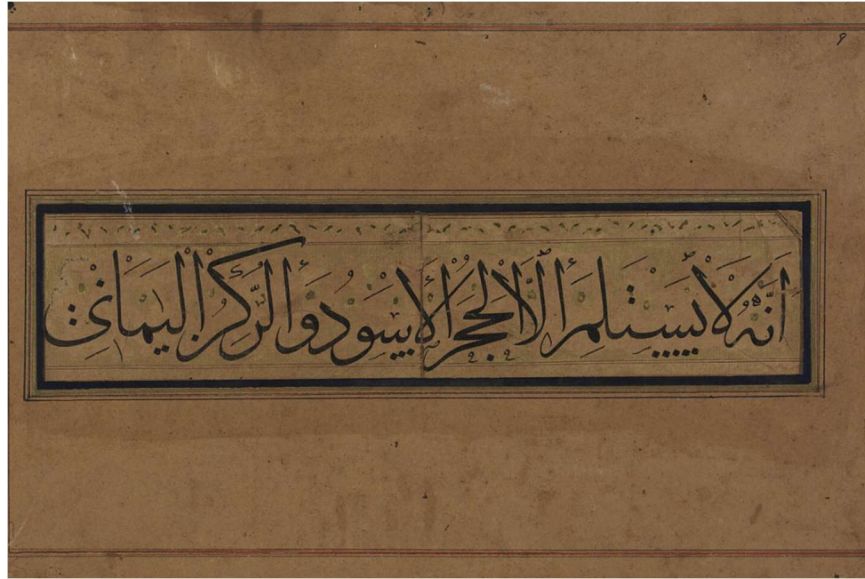 ٩
اَنَّهُ لَا يَسْتَلِمَ اِلَّا الْحَجَرَ الْاَسْوَدَ وَالرُّكْنَ الْيَمَانِيَ